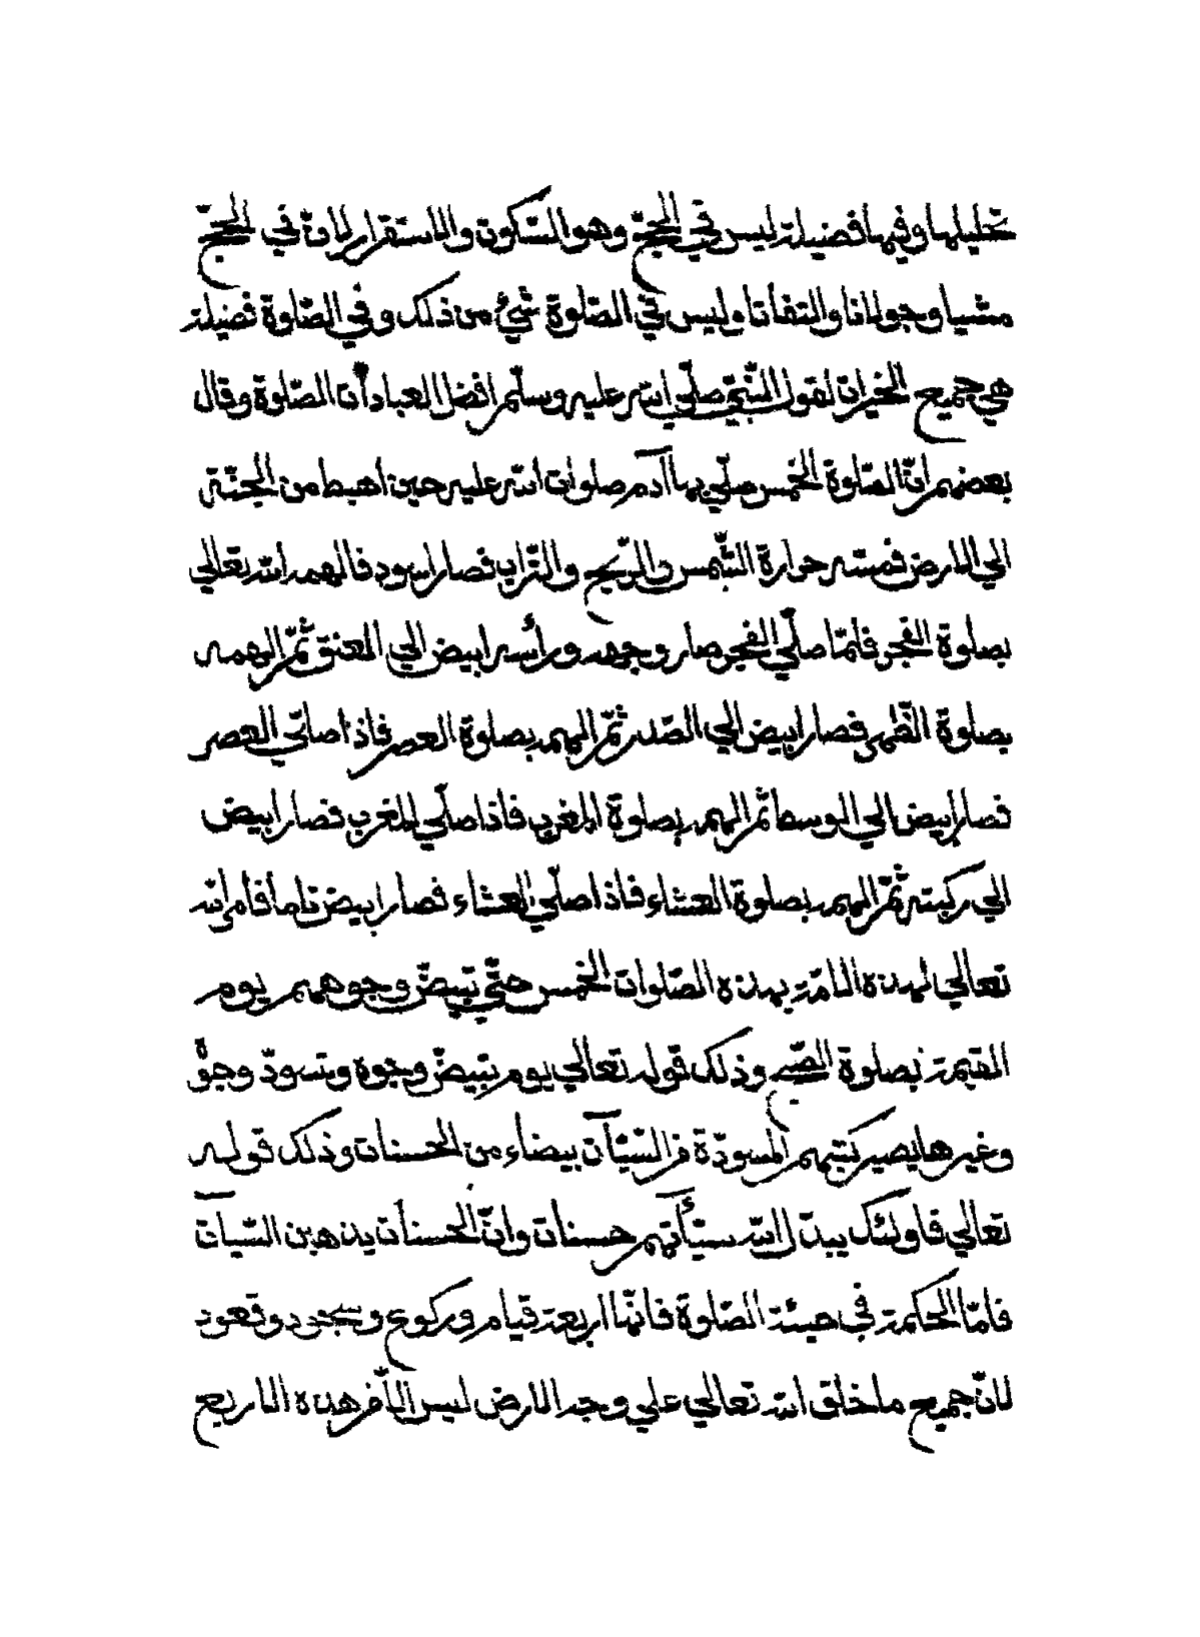 تحليلها وفيها فضيلة ليس في الحجّ وهو السّكون والاستقرار لانّ في الحجّ
مشيا وجولانا والتفاتا وليس في الصّلوة شئ من ذلك وفي الصّلوة فضيلة
هي جميع الخيرات لقول النّبيّ صلّي الله عليه وسلّم افضل العبادات الصّلوة وقال
بعضهم انّ الصّلوة الخمس صلّي بها آدم صلوات الله عليه حين اهبط من الجنّة
الي الارض فمسّته حرارة الشّمس والرّيح والتّراب فصار اسود فالهمه الله تعالي
بصلوة الفجر فلمّا صلّي الفجر صار وجهه ورأسه ابيض الي العنق ثمّ الهمه
بصلوة الظّهر فصار ابيض الي الصّدر ثمّ الهمه بصلوة العصر فاذا صلّي العصر
فصار ابيض الي الوسط ثم الهمه بصلوة المغرب فاذا صلّي المغرب فصار ابيض
الي ركبته ثمّ الهمه بصلوة العشاء فاذا صلّي العشاء فصار ابيض تاما فامر الله
تعالي لهذه الامّة بهذه الصّلوات الخمس حتّي تبيضّ وجوههم يوم
القيمة بصلوة الصّبح وذلك قوله تعالي يوم تبيضّ وجوه وتسودّ وجوه
وغيرها يصير كتبهم المسودّة من السّيّآت بيضاء من الحسنات وذلك قوله
تعالي فاولئك يبدّل الله سيّأتهم حسنات وانّ الحسنات يذهبن السّيآت
فامّا الحكمة في هيئة الصّلوة فانّها اربعة قيام وركوع وسجود وقعود
لانّ جميع ما خلق الله تعالي علي وجه الارض ليس الّا من هذه الاربع